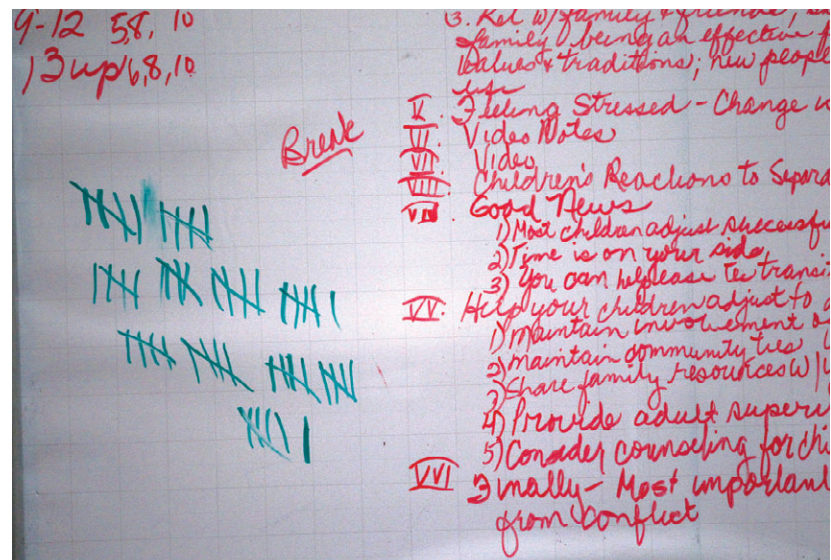 9-12 5,8, 10
13 up 6,8,10
Break
3. Rel w/family & friends,
family being an effective
values & traditions; new people
V. Feeling Stressed - Change
VI. Video Notes
VII. Video
VIII. Children's Reactions to Separa
VIV. Good News
1) Most children adjust successfu
2) Time is on your side,
3) You can help ease the transi
VV. Help your children adjust to
1) Maintain involvement of
2) maintain community ties
3) Share family resources w/
4) Provide adult supervi
5) Consider counseling for chi
VVI Finally - Most important
from Conflict